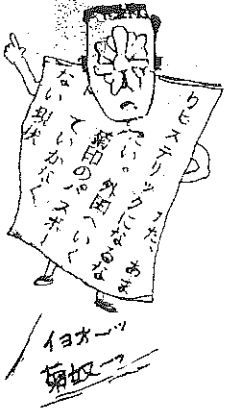 りヒステリックになるな
たい。外国へいく
菊印のパスポー
ていかなく
ない現状
イヨオーッ
菊奴ーッ